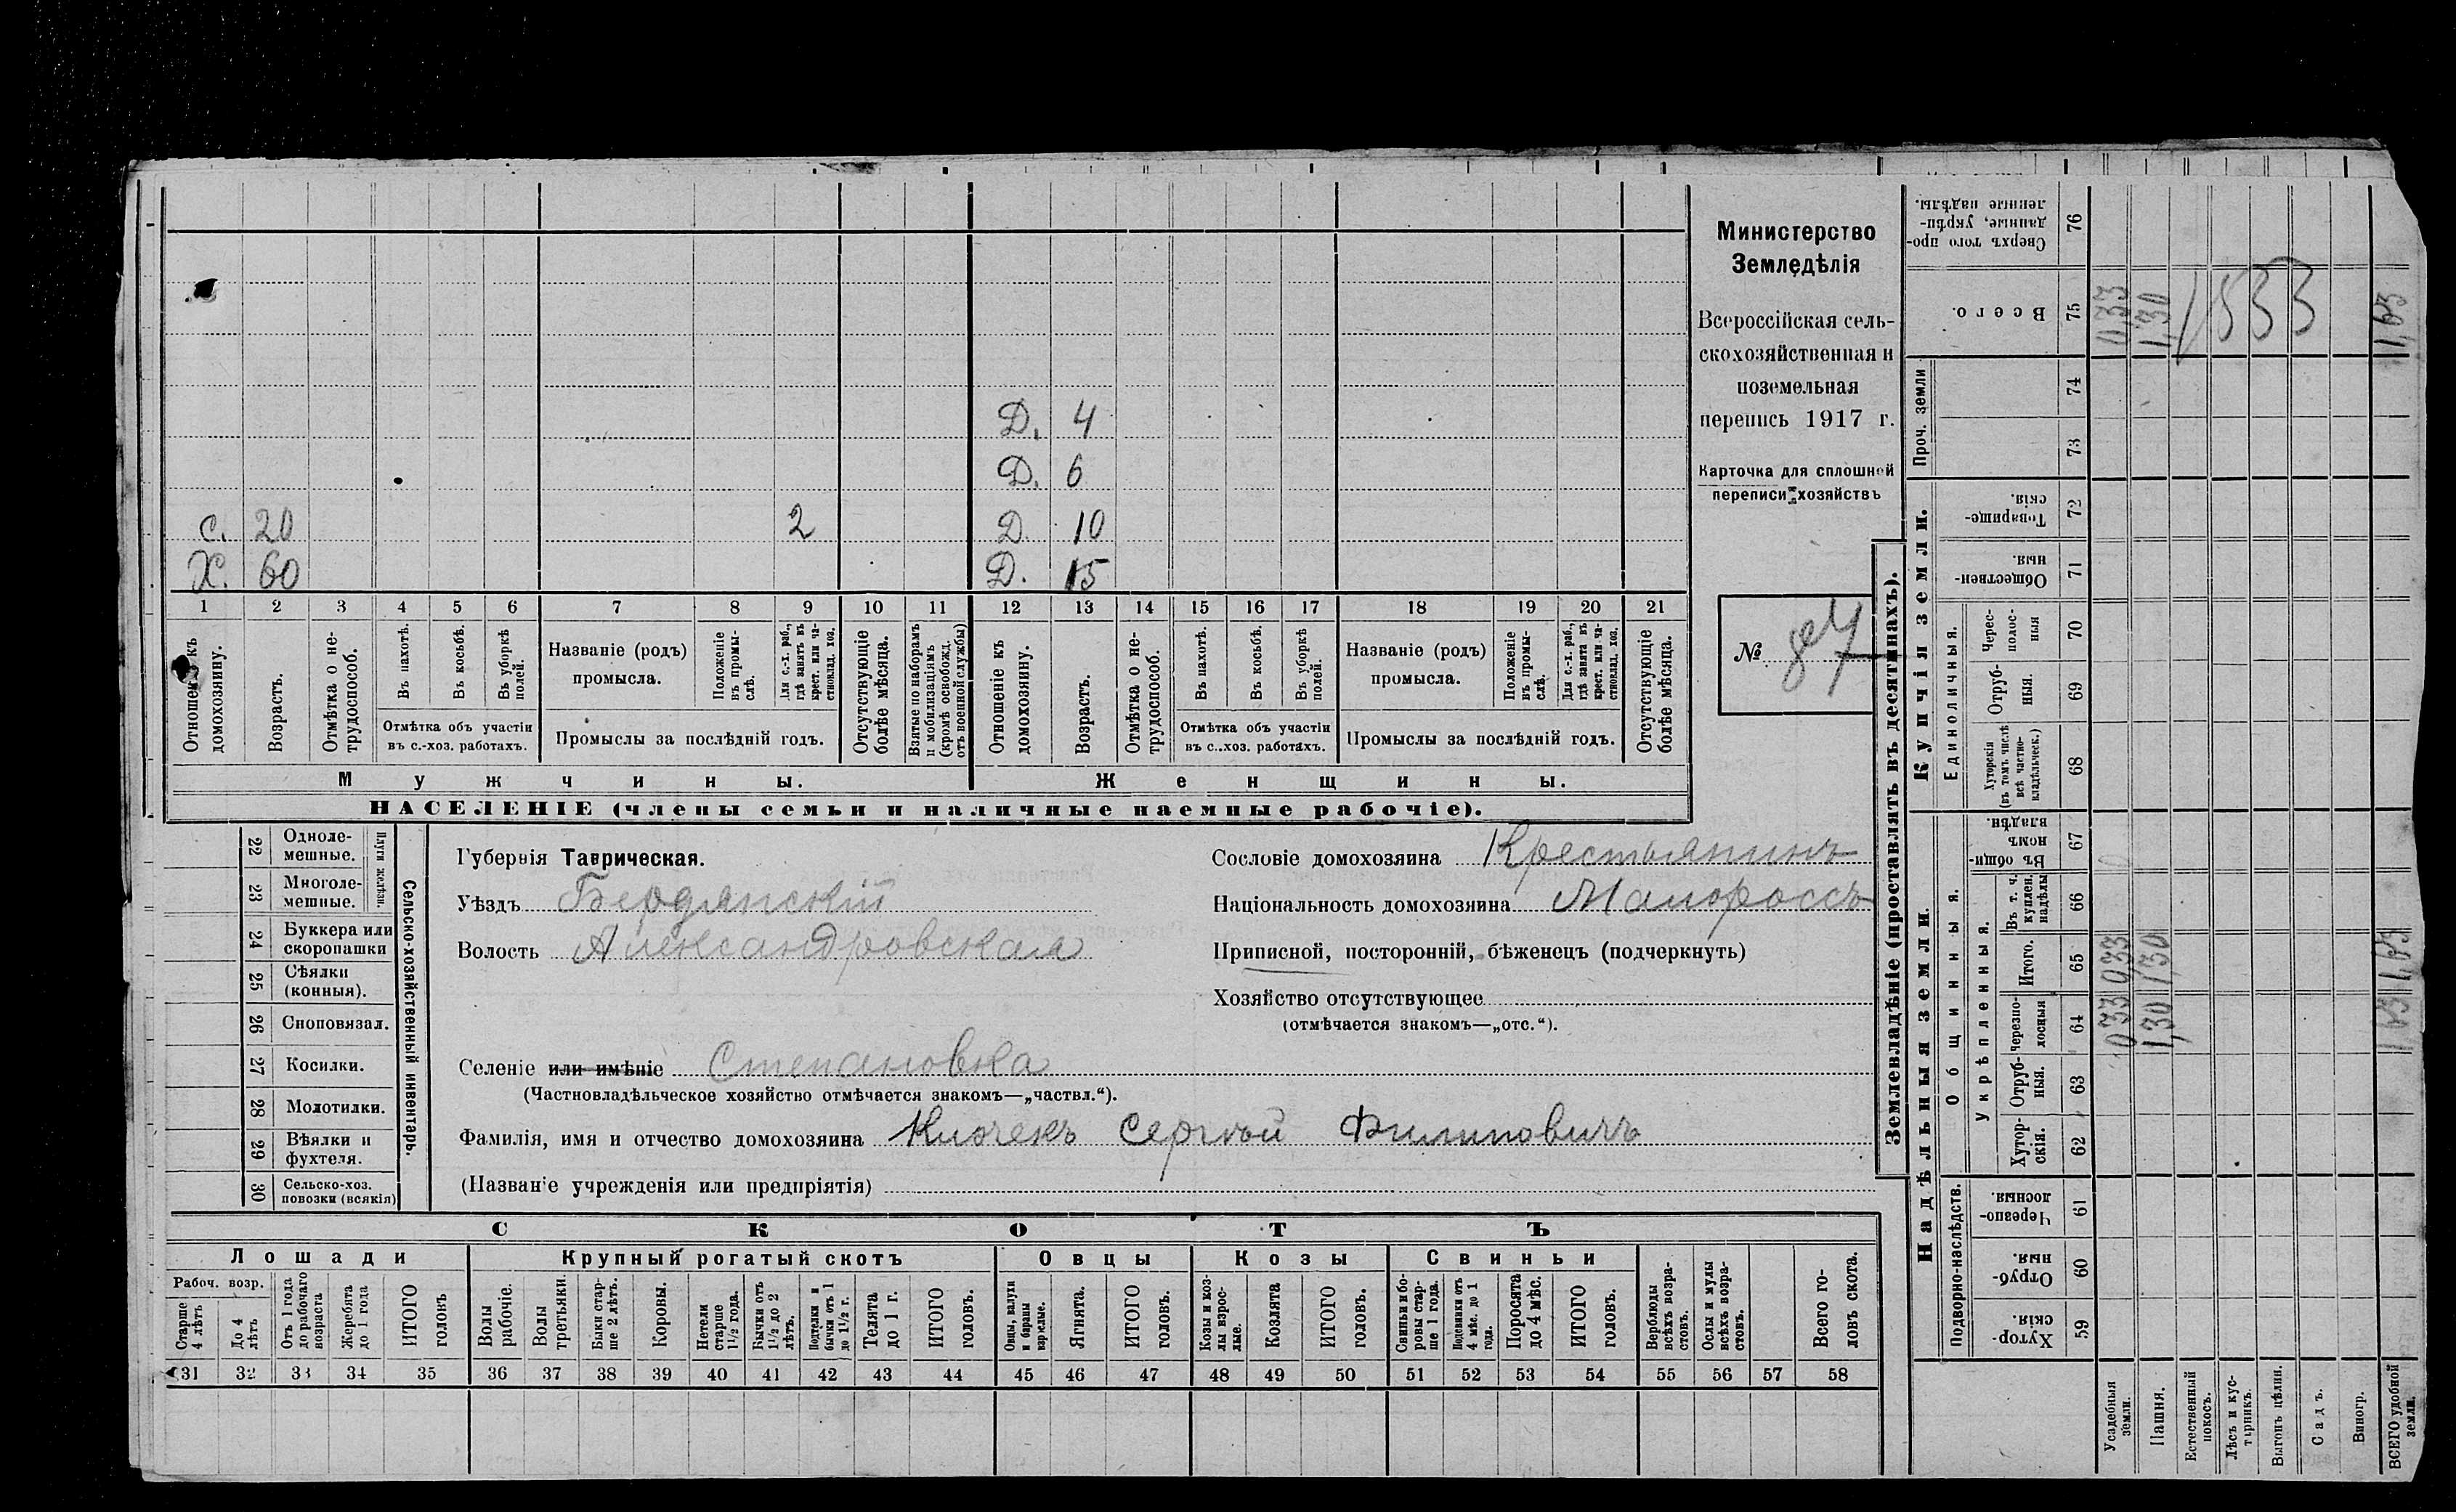 Д. 4
Д. 6
С. 20 2 Д. 10
Х. 60 Д. 15
1 2 3 4 5 6 7 8 9 10 11 12 13 14 15 16 17 18 19 20 21
Отношен. къ домохозяину.
Возрастъ.
Отмѣтка о не-трудоспособ.
Въ пахотѣ.
Въ косьбѣ.
Въ уборкѣ полей.
Отмѣтка объ участіи
въ с.-хоз. работахъ.
Названіе (родъ)
промысла.
Положеніе въ промы-слѣ.
Для с.-х. раб., гдѣ занятъ въ крест. или ча-стновлад. хоз.
Промыслы за послѣдній годъ.
Отсутствующіе болѣе мѣсяца.
Взятые по наборамъ и мобилизаціямъ (кромѣ освобожд. отъ военной службы)
Отношеніе къ домохозяину.
Возрастъ.
Отмѣтка о не-трудоспособ.
Въ пахотѣ.
Въ косьбѣ.
Въ уборкѣ полей.
Отмѣтка объ участіи
въ с.-хоз. работахъ.
Названіе (родъ)
промысла.
Положеніе въ промы-слѣ.
Для с.-х. раб., гдѣ занята въ крест. или ча-стновлад. хоз.
Промыслы за послѣдній годъ.
Отсутствующіе болѣе мѣсяца.
Мужчины. Женщины.
НАСЕЛЕНІЕ (члены семьи и наличные наемные рабочіе).
Министерство
Земледѣлія
Всероссійская сель-
скохозяйственная и
поземельная
перепись 1917 г.
Карточка для сплошной
переписи хозяйствъ
№ 87
22 Одноле-мешные.
23 Многоле-мешные.
Плуги желѣзн.
24 Буккера или скоропашки
25 Сѣялки (конныя).
26 Сноповязал.
27 Косилки.
28 Молотилки.
29 Вѣялки и фухтеля.
30 Сельско-хоз. повозки (всякія)
Сельско-хозяйственный инвентарь.
Губернія Таврическая.
Уѣздъ Бердянскій
Волость Александровская
Сословіе домохозяина Крестьянинъ
Національность домохозяина Малороссъ
Приписной, посторонній, бѣженецъ (подчеркнуть)
Хозяйство отсутствующее
(отмѣчается знакомъ—„отс.“).
Селеніе или имѣніе Степановка
(Частновладѣльческое хозяйство отмѣчается знакомъ—„частвл.“).
Фамилія, имя и отчество домохозяина Сергѣй Филиповичъ
(Названіе учрежденія или предпріятія)
СКОТЪ
Лошади Крупный рогатый скотъ Овцы Козы Свиньи
Рабоч. возр.
Старше 4 лѣтъ
До 4 лѣтъ
Отъ 1 года до рабочаго возраста
Жеребята до 1 года
ИТОГО головъ
Волы рабочіе.
Волы третьяки.
Быки стар-ше 2 лѣтъ.
Коровы.
Нетели старше 1½ года.
Бычки отъ 1½ до 2 лѣтъ.
Подтелки и бычки отъ 1 до 1½ г.
Телята до 1 г.
ИТОГО головъ.
Овцы, валухи и бараны взрослые.
Ягнята.
ИТОГО головъ.
Козы и коз-лы взрос-лые.
Козлята
ИТОГО головъ.
Свиньи и бо-ровы стар-ше 1 года.
Подсвинки отъ 4 мѣс. до 1 года.
Поросята до 4 мѣс.
ИТОГО головъ.
Верблюды всѣхъ возра-стовъ.
Ослы и мулы всѣхъ возра-стовъ.
Всего го-ловъ скота.
31 32 33 34 35 36 37 38 39 40 41 42 43 44 45 46 47 48 49 50 51 52 53 54 55 56 57 58
Землевладѣніе (проставлять въ десятинахъ).
Сверхъ того про-данные, укрѣп-ленные надѣлы. 76
Всего. 75 0,33 1,30 1,63
1533
Проч. земли 74
73
Купчія земли.
Товарище-скія. 72
Обществен-ныя 71
Единоличныя.
Черес-полос-ныя 70
Отруб-ныя. 69
Хуторскія (въ томъ числѣ всѣ частно-владѣльческ.) 68
Надѣльныя земли.
Общинныя.
Въ общи-номъ владѣн. 67
Укрѣпленныя.
Въ т. ч. куплен. надѣлы 66
Итого. 65 0,33 1,30 1,63
Черезпо-лосныя 64 0,33 1,30 1,63
Отруб-ныя. 63
Хутор-скія. 62
Подворно-наслѣдств.
Черезпо-лосныя. 61
Отруб-ныя. 60
Хутор-скія. 59
Усадебныя земли.
Пашня.
Естественный покосъ.
Лѣсъ и кус-тарникъ.
Выгонъ цѣлин.
Садъ.
Виногр.
ВСЕГО удобной земли.